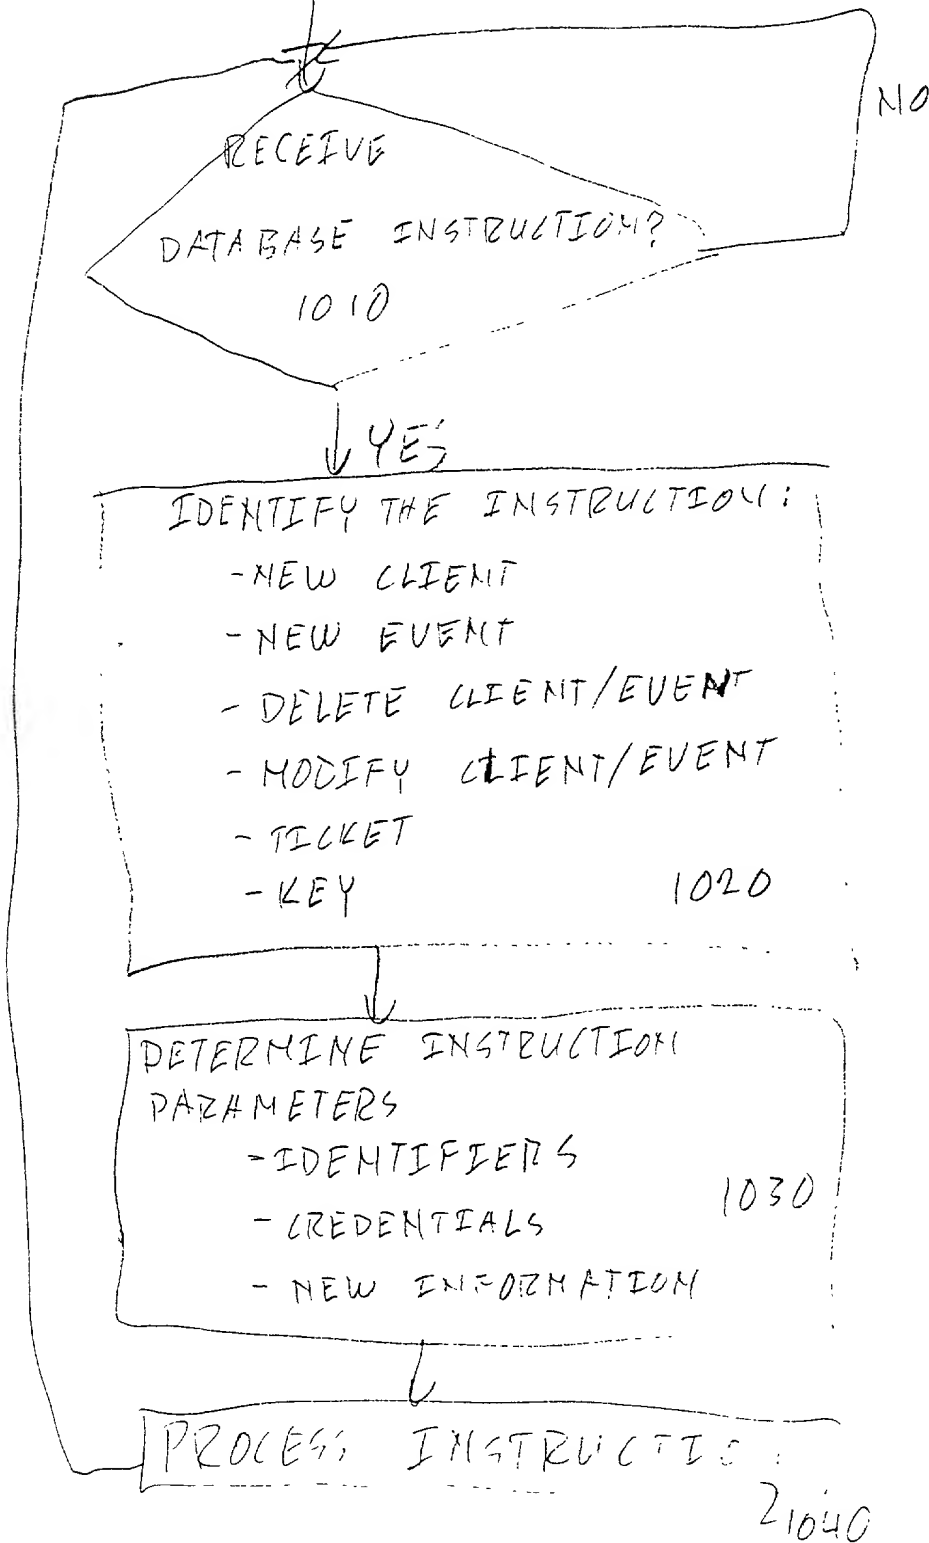 NO
RECEIVE
DATABASE INSTRUCTION?
1010
YES
IDENTIFY THE INSTRUCTION:
-NEW CLIENT
-NEW EVENT
- DELETE CLIENT/EVENT
- MODIFY CLIENT/EVENT
- TICKET
- KEY 1020
DETERMINE INSTRUCTION
PARAMETERS
-IDENTIFIERS
- CREDENTIALS 1030
- NEW INFORMATION
PROCESS
1040